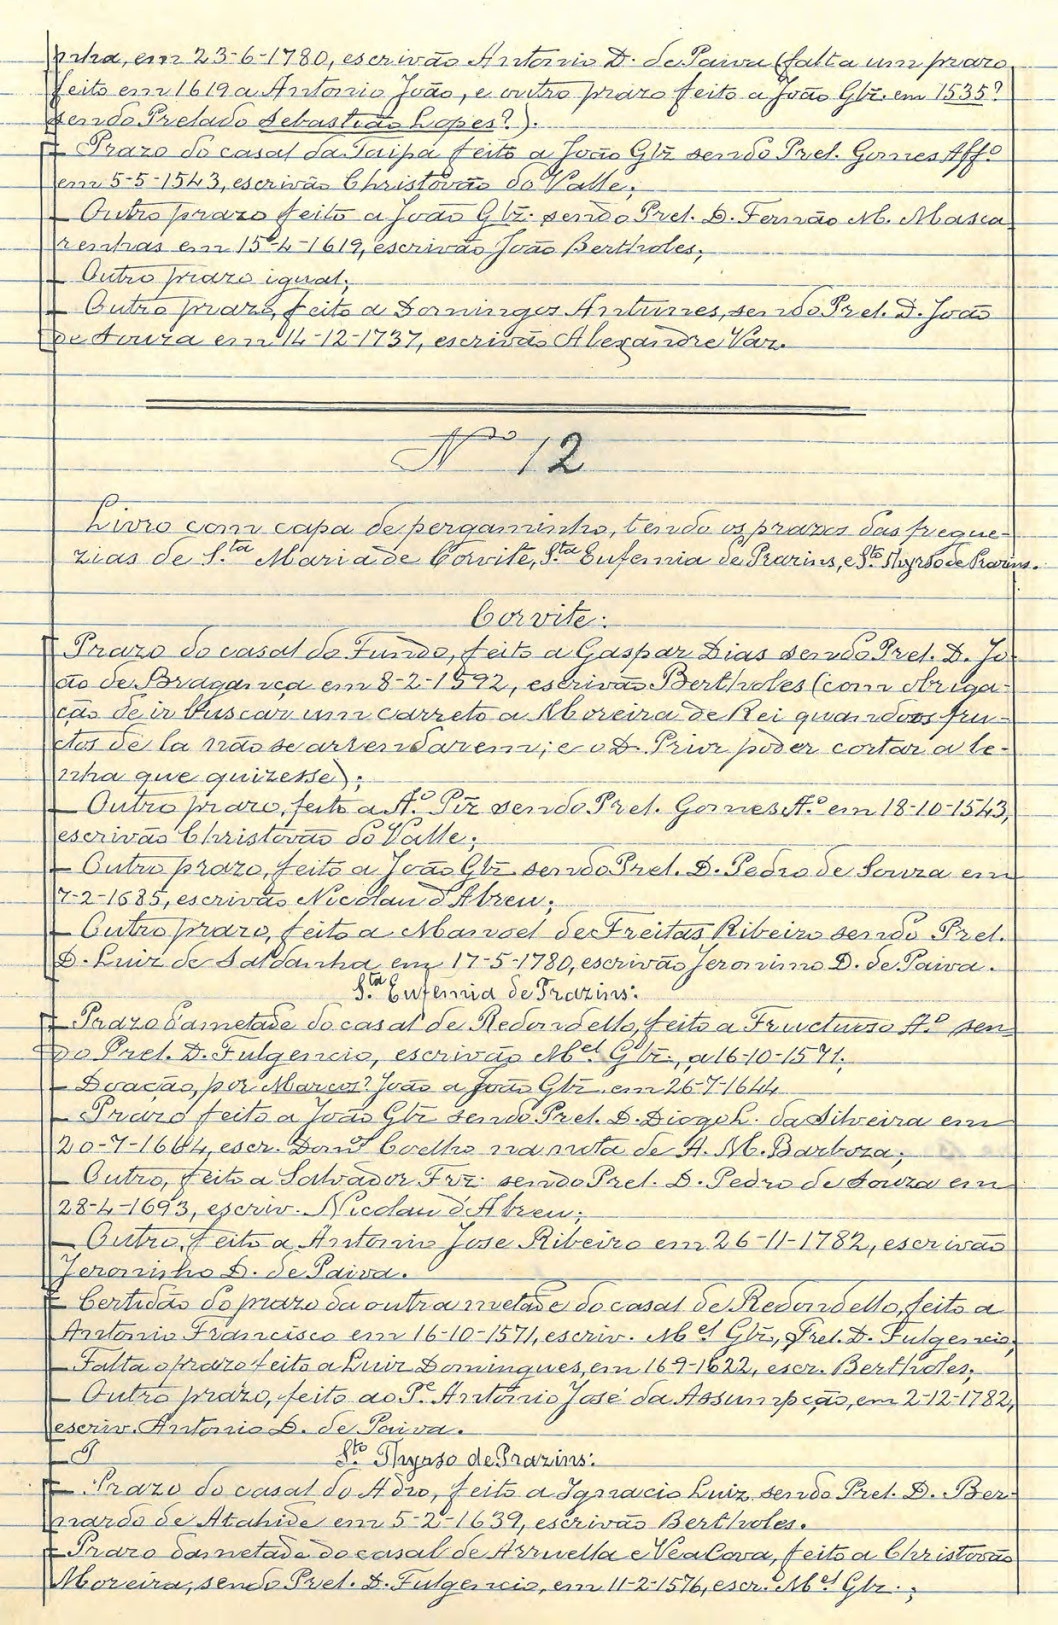 nha, em 23-6-1780, escrivão Antonio D. de Paiva (falta um prazo
feito em 1619 a Antonio João, e outro prazo feito a João Glz. em 1535?
sendo Prelado Sebastião Lopes?).
Prazo do casal da Taipa feito a João Glz sendo Prel. Gomes Aff.º
em 5-5-1543, escrivão Christovão do Valle;
Outro prazo feito a João Glz. sendo Prel. D. Fernão M. Masca
renhas em 15-4-1619, escrivão João Bertholes;
Outro prazo igual;
Outro prazo, feito a Domingos Antunes, sendo Prel. D. João
de Souza em 14-12-1737, escrivão Alexandre Vaz.
Nº 12
Livro com capa de pergaminho, tendo os prazos das fregue-
zias de S.ta Maria de Corvite, S.ta Eufemia de Prazins, e S.to Thyrso de Prazins.
Corvite:
Prazo do casal do Fundo, feito a Gaspar Dias sendo Prel. D. Jo-
ão de Bragança em 8-2-1592, escrivão Bertholes (com obriga-
ção de ir buscar um carreto a Moreira de Rei quando os fru-
ctos de la não se arrendarem; e o D. Prior poder cortar a le-
nha que quizesse);
Outro prazo, feito a A.º Piz sendo Prel. Gomes A.º em 18-10-1543,
escrivão Christovão do Valle;
Outro prazo, feito a João Glz sendo Prel. D. Pedro de Souza em
7-2-1685, escrivão Nicolau d'Abreu;
Outro prazo, feito a Manoel de Freitas Ribeiro sendo Prel.
D. Luiz de Saldanha em 17-5-1780, escrivão Jeronimo D. de Paiva.
S.ta Eufemia de Prazins:
Prazo da metade do casal de Redondello, feito a Fructuoso A.º sen-
do Prel. D. Fulgencio, escrivão M.el Glz., a 16-10-1571;
Doação, por Marcos? João a João Glz. em 26-7-1644
Prazo feito a João Glz sendo Prel. D. Diogo L. da Silveira em
20-7-1644, escr. Dom.os Coelho na nota de A. M. Barboza;
Outro, feito a Salvador Frz. sendo Prel. D. Pedro de Souza em
28-4-1693, escriv. Nicolau d'Abreu;
Outro, feito a Antonio Jose Ribeiro em 26-11-1782, escrivão
Jeroninho D. de Paiva.
Certidão do prazo da outra metade do casal de Redondello, feito a
Antonio Francisco em 16-10-1571, escriv. M.el Glz, Prel. D. Fulgencio;
Falta o prazo feito a Luiz Domingues, em 16-9-1622, escr. Bertholes;
Outro prazo, feito ao P.e Antonio José da Assumpção, em 2-12-1782,
escriv. Antonio D. de Paiva.
S.to Thyrso de Prazins:
Prazo do casal do Adro, feito a Ignacio Luiz, sendo Prel. D. Ber-
nardo de Atahide em 5-2-1639, escrivão Bertholes.
Prazo da metade do casal de Arruella e Vea Cova, feito a Christovão
Moreira, sendo Prel. D. Fulgencio, em 11-2-1576, escr. M.el Glz.;